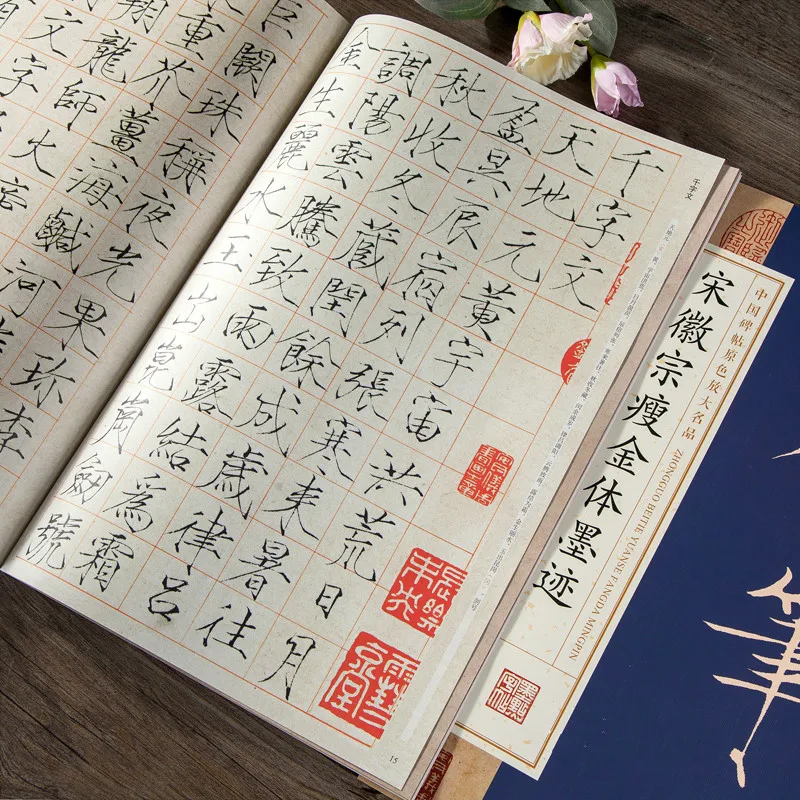 千字文
天地元黃宇宙洪荒日月
盈昃辰宿列張寒来暑往
秋收冬藏閏餘成歲律吕
調陽雲騰致雨露結為霜
金生麗水玉出崑崗劍號
巨闕珠稱夜光果珍李
重芥薑海鹹河
翔龍師火
文字
千字文
15
中国碑帖原色放大名品
宋徽宗瘦金体墨迹
ZHONGGUO BEITIE YUANSE FANGDA MINGPIN
筆